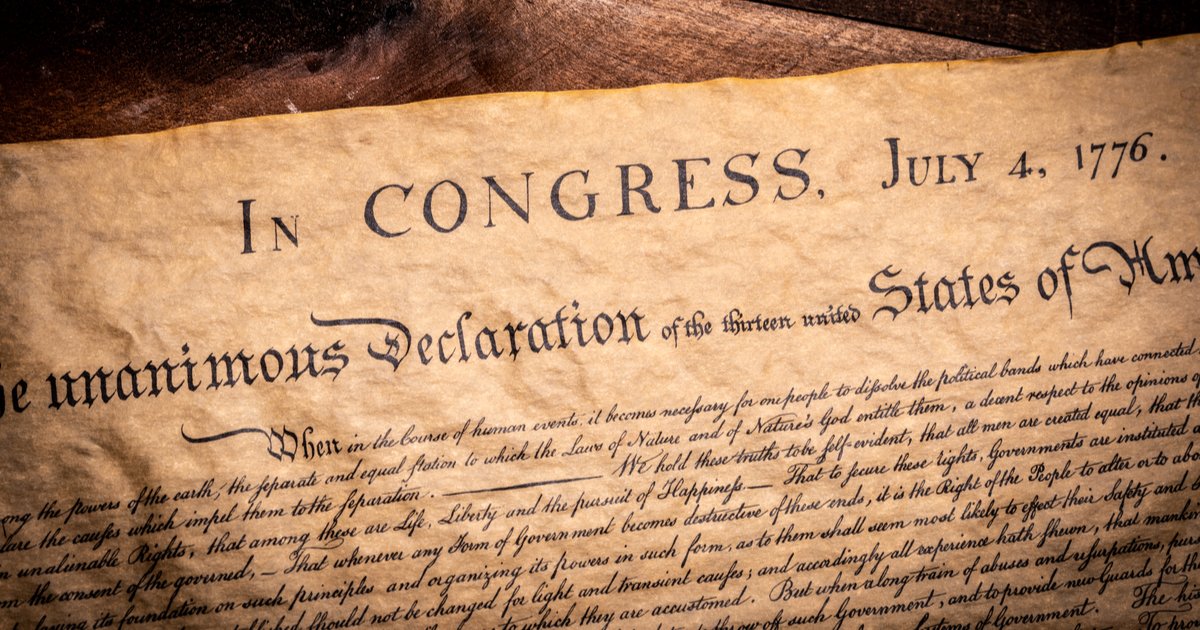 In CONGRESS, July 4, 1776.
he unanimous Declaration of the thirteen united States of Am
When in the Course of human events, it becomes necessary for one people to dissolve the political bands which have connected
ong the powers of the earth, the separate and equal station to which the Laws of Nature and of Nature's God entitle them, a decent respect to the opinions of
lare the causes which impel them to the separation. We hold these truths to be self-evident, that all men are created equal, that th
n unalienable Rights, that among these are Life, Liberty and the pursuit of Happiness.— That to secure these rights, Governments are instituted a
m the consent of the governed,— That whenever any Form of Government becomes destructive of these ends, it is the Right of the People to alter or to abo
laying its foundation on such principles and organizing its powers in such form, as to them shall seem most likely to effect their Safety and
should not be changed for light and transient causes; and accordingly all experience hath shewn, that mankin
to which they are accustomed. But when a long train of abuses and usurpations, pur
throw off such Government, and to provide new Guards for the
Systems of Government. The his
To pro